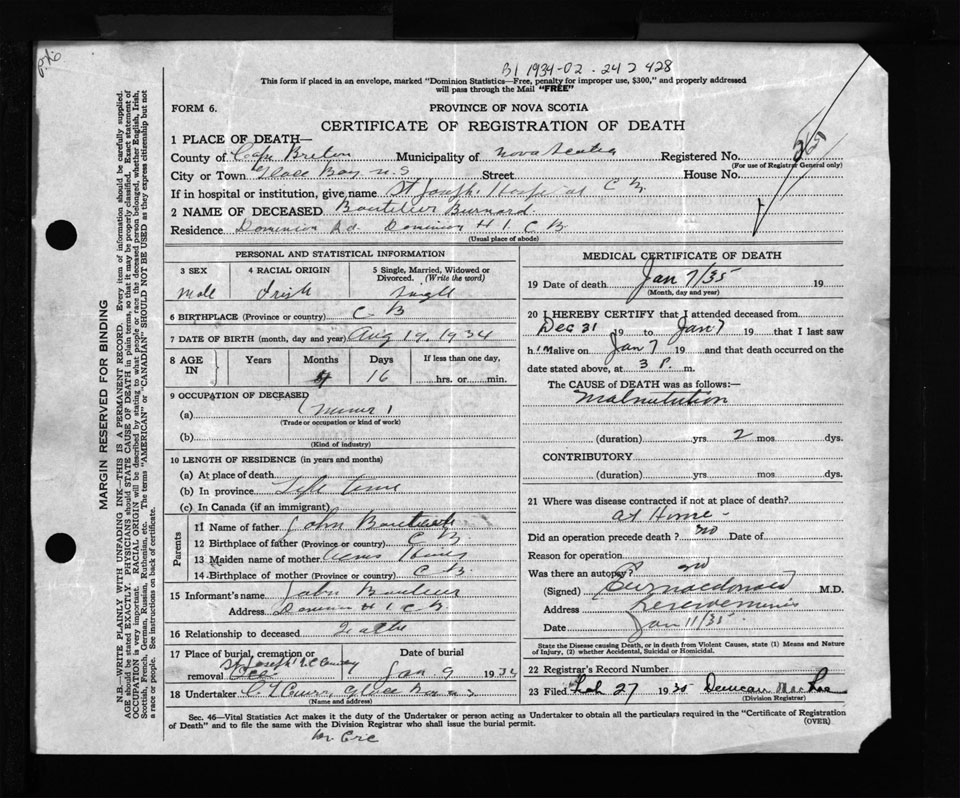 B1 1934-02-242428
This form if placed in an envelope, marked "Dominion Statistics—Free, penalty for improper use, $300," and properly addressed
will pass through the Mail "FREE"
FORM 6.
PROVINCE OF NOVA SCOTIA
CERTIFICATE OF REGISTRATION OF DEATH
MARGIN RESERVED FOR BINDING
N.B.—WRITE PLAINLY WITH UNFADING INK—THIS IS A PERMANENT RECORD. Every item of information should be carefully supplied.
AGE should be stated EXACTLY. PHYSICIANS should STATE CAUSE OF DEATH in plain terms, so that it may be properly classified. Exact statement of
OCCUPATION is very important. RACIAL ORIGIN will be described by stating to what people or race the deceased person belonged, whether English, Irish,
Scottish, French, German, Russian, Ruthenian, etc. The terms "AMERICAN" or "CANADIAN" SHOULD NOT BE USED as they express citizenship but not
a race or people. See instructions on back of certificate.
1 PLACE OF DEATH—
County of Cape Breton Municipality of Nova Scotia Registered No.
(For use of Registrar General only)
City or Town Glace Bay N.S Street House No.
If in hospital or institution, give name St Joseph Hospital C B
2 NAME OF DECEASED Boutilier Burnard
Residence Dominion Rd. Dominion # 1 C B
(Usual place of abode)
PERSONAL AND STATISTICAL INFORMATION
3 SEX 4 RACIAL ORIGIN 5 Single, Married, Widowed or
Divorced. (Write the word)
Male Irish Single
6 BIRTHPLACE (Province or country) C B
7 DATE OF BIRTH (month, day and year) Aug 19, 1934
8 AGE IN Years Months Days If less than one day,
16 hrs. or min.
9 OCCUPATION OF DECEASED
(a)
(Trade or occupation or kind of work)
(b)
(Kind of industry)
10 LENGTH OF RESIDENCE (in years and months)
(a) At place of death
(b) In province Life time
(c) In Canada (if an immigrant)
Parents
11 Name of father John Boutilier
12 Birthplace of father (Province or country) C B
13 Maiden name of mother
14 Birthplace of mother (Province or country) C B.
15 Informant's name John Boutilier
Address Dominion # 1 C B
16 Relationship to deceased Father
17 Place of burial, cremation or removal Date of burial
St Joseph Jan 9 1934
18 Undertaker Glace Bay N S
(Name and address)
MEDICAL CERTIFICATE OF DEATH
19 Date of death Jan 7/35 19
(Month, day and year)
20 I HEREBY CERTIFY that I attended deceased from
Dec 31 19 to Jan 7 19 that I last saw
h im alive on Jan 7 19 and that death occurred on the
date stated above, at 3 P. m.
The CAUSE of DEATH was as follows:—
Malnutrition
(duration) yrs 2 mos dys.
CONTRIBUTORY
(duration) yrs. mos. dys.
21 Where was disease contracted if not at place of death?
at Home -
Did an operation precede death? no Date of
Reason for operation
Was there an autopsy? no
(Signed) Macdonald M.D.
Address Reserve Mines
Date Jan 11/35
State the Disease causing Death, or in death from Violent Causes, state (1) Means and Nature
of Injury, (2) whether Accidental, Suicidal or Homicidal.
22 Registrar's Record Number
23 Filed Feb 27 1935 Duncan
(Division Registrar)
Sec. 46—Vital Statistics Act makes it the duty of the Undertaker or person acting as Undertaker to obtain all the particulars required in the "Certificate of Registration
of Death" and to file the same with the Division Registrar who shall issue the burial permit.
(OVER)